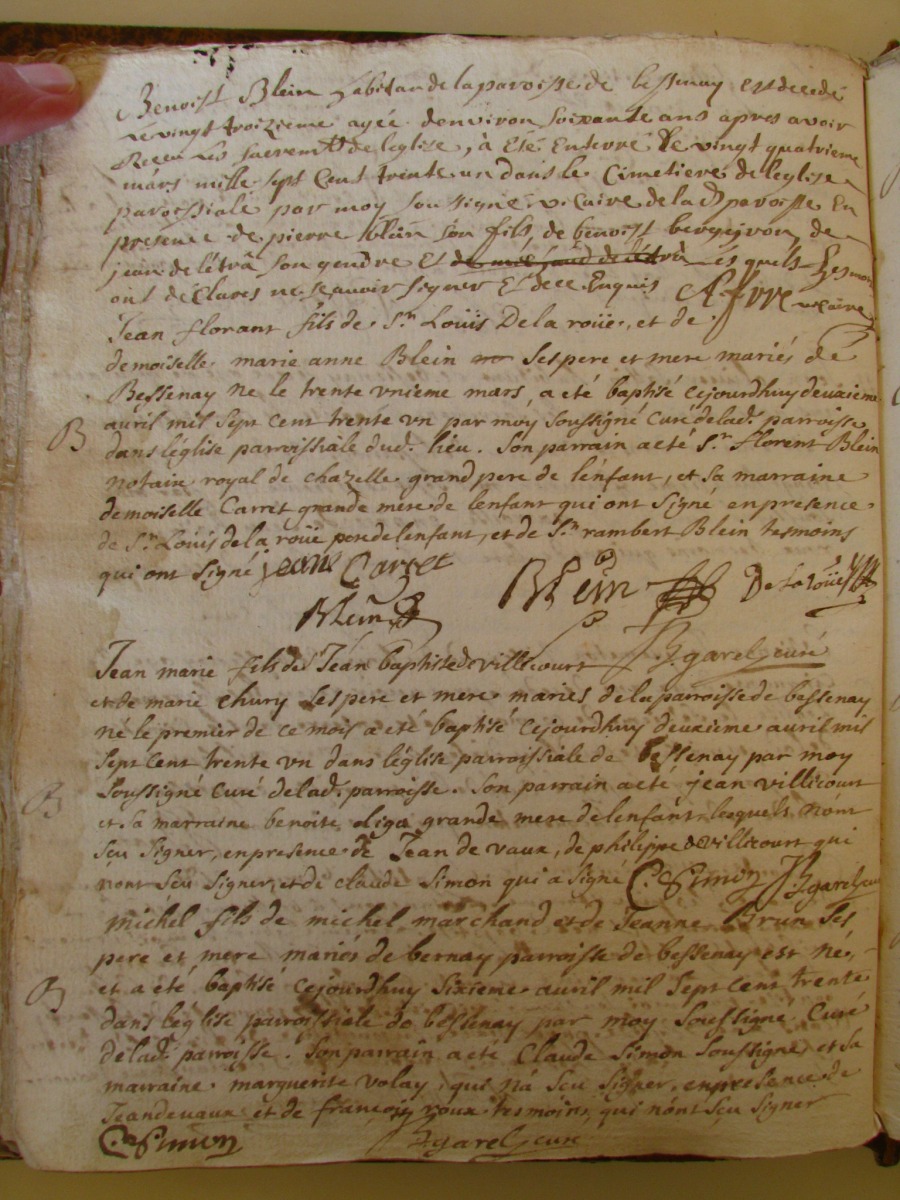 Benoist Blein habitan de la paroisse de bessenay est decedé
le vingt troizieme agée denviron soixante ans apres avoir
Receu les sacremts de leglise, à été Enterré le vingt quatrieme
mars mille sept Cent trente un dans le Cimetiere de leglise
paroissiale par moy soussigné vicaire de lad paroisse En
presence de pierre blein son fils, de benoist de
jean de létrà son gendre Et és quels
ont déClarés ne scauoir signer Et de ce Enquis vicaire
Jean florant fils de Sr Loüis De la roüe, et de
demoiselle marie anne Blein ses pere et mere mariés de
Bessenay ne le trente vnieme mars, a eté baptisé cejourdhuy deuxieme
auril mil sept cent trente vn par moy soussigné curé de lad. parroisse
dans l'église parroissiale dud. lieu. Son parrain a eté Sr florent Blein
notaire royal de chazelle grand pere de lénfant, et sa marraine
demoiselle Carret grande mere de lenfant qui ont signé en presence
de Sr Loüis de la roüe pere de lenfant, et de Sr rambert Blein tesmoins
qui ont signé jeane Carret
Blein De la roüe
Blein
B
Jean marie fils de Jean baptiste de villecourt garel curé
et de marie chury ses pere et mere mariés de la parroisse de bessenay
né le premier de ce mois a eté baptisé cejourdhuy deuxieme auril mil
sept cent trente vn dans l'église parroissiale de bessenay par moy
soussigné curé de lad. parroisse. Son parrain a eté jean villecourt
et sa marraine benoite grande mere de lenfant lesquels nont
seu signer, en presence de Jean de vaux, de philippe de villecourt qui
nont seu signer, et de claude simon qui a signé C. Simon garel curé
B
michel fils de michel marchand et de Jeanne Brun ses
pere et mere mariés de bernay parroisse de bessenay est né,
et a eté baptisé cejourdhuy sixieme auril mil sept cent trente
dans l'église parroissiale de bessenay par moy soussigné Curé
de lad. parroisse. Son parrain a eté Claude Simon soussigné, et sa
marraine marguerite volay, qui n'a seu signer, en presence de
Jean devaux et de françois roux tesmoins, qui n'ont seu signer
B
C. Simon garel curé